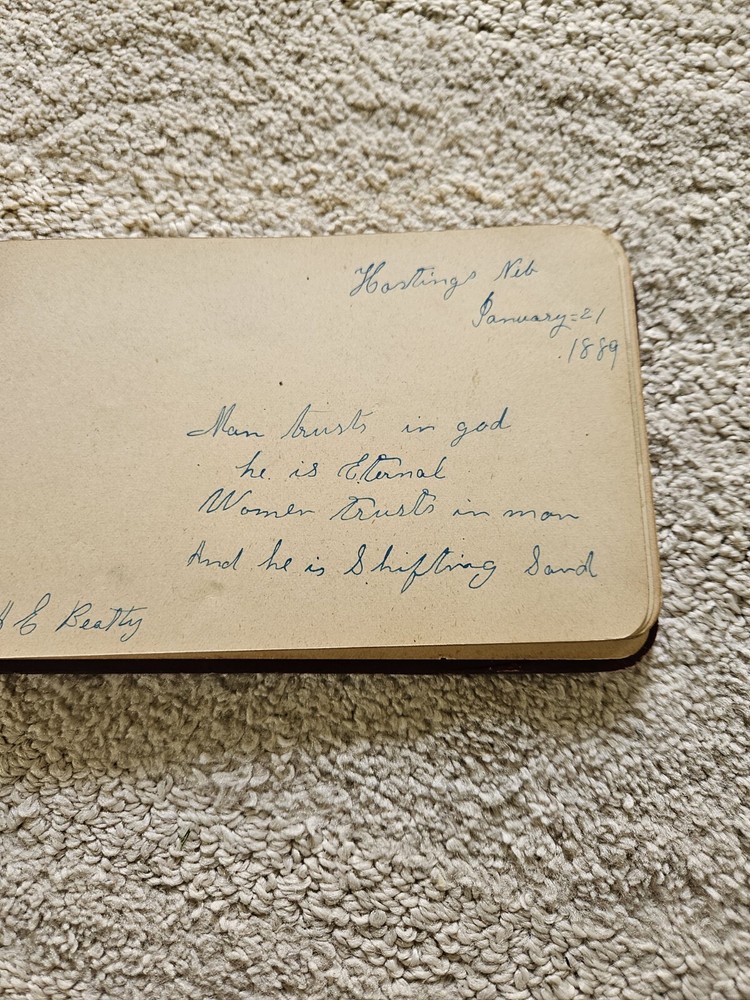 Hastings Neb
January=21
.1889
Man trusts in god
he is Eternal
Women trusts in man
And he is Shifting Sand
H E Beatty